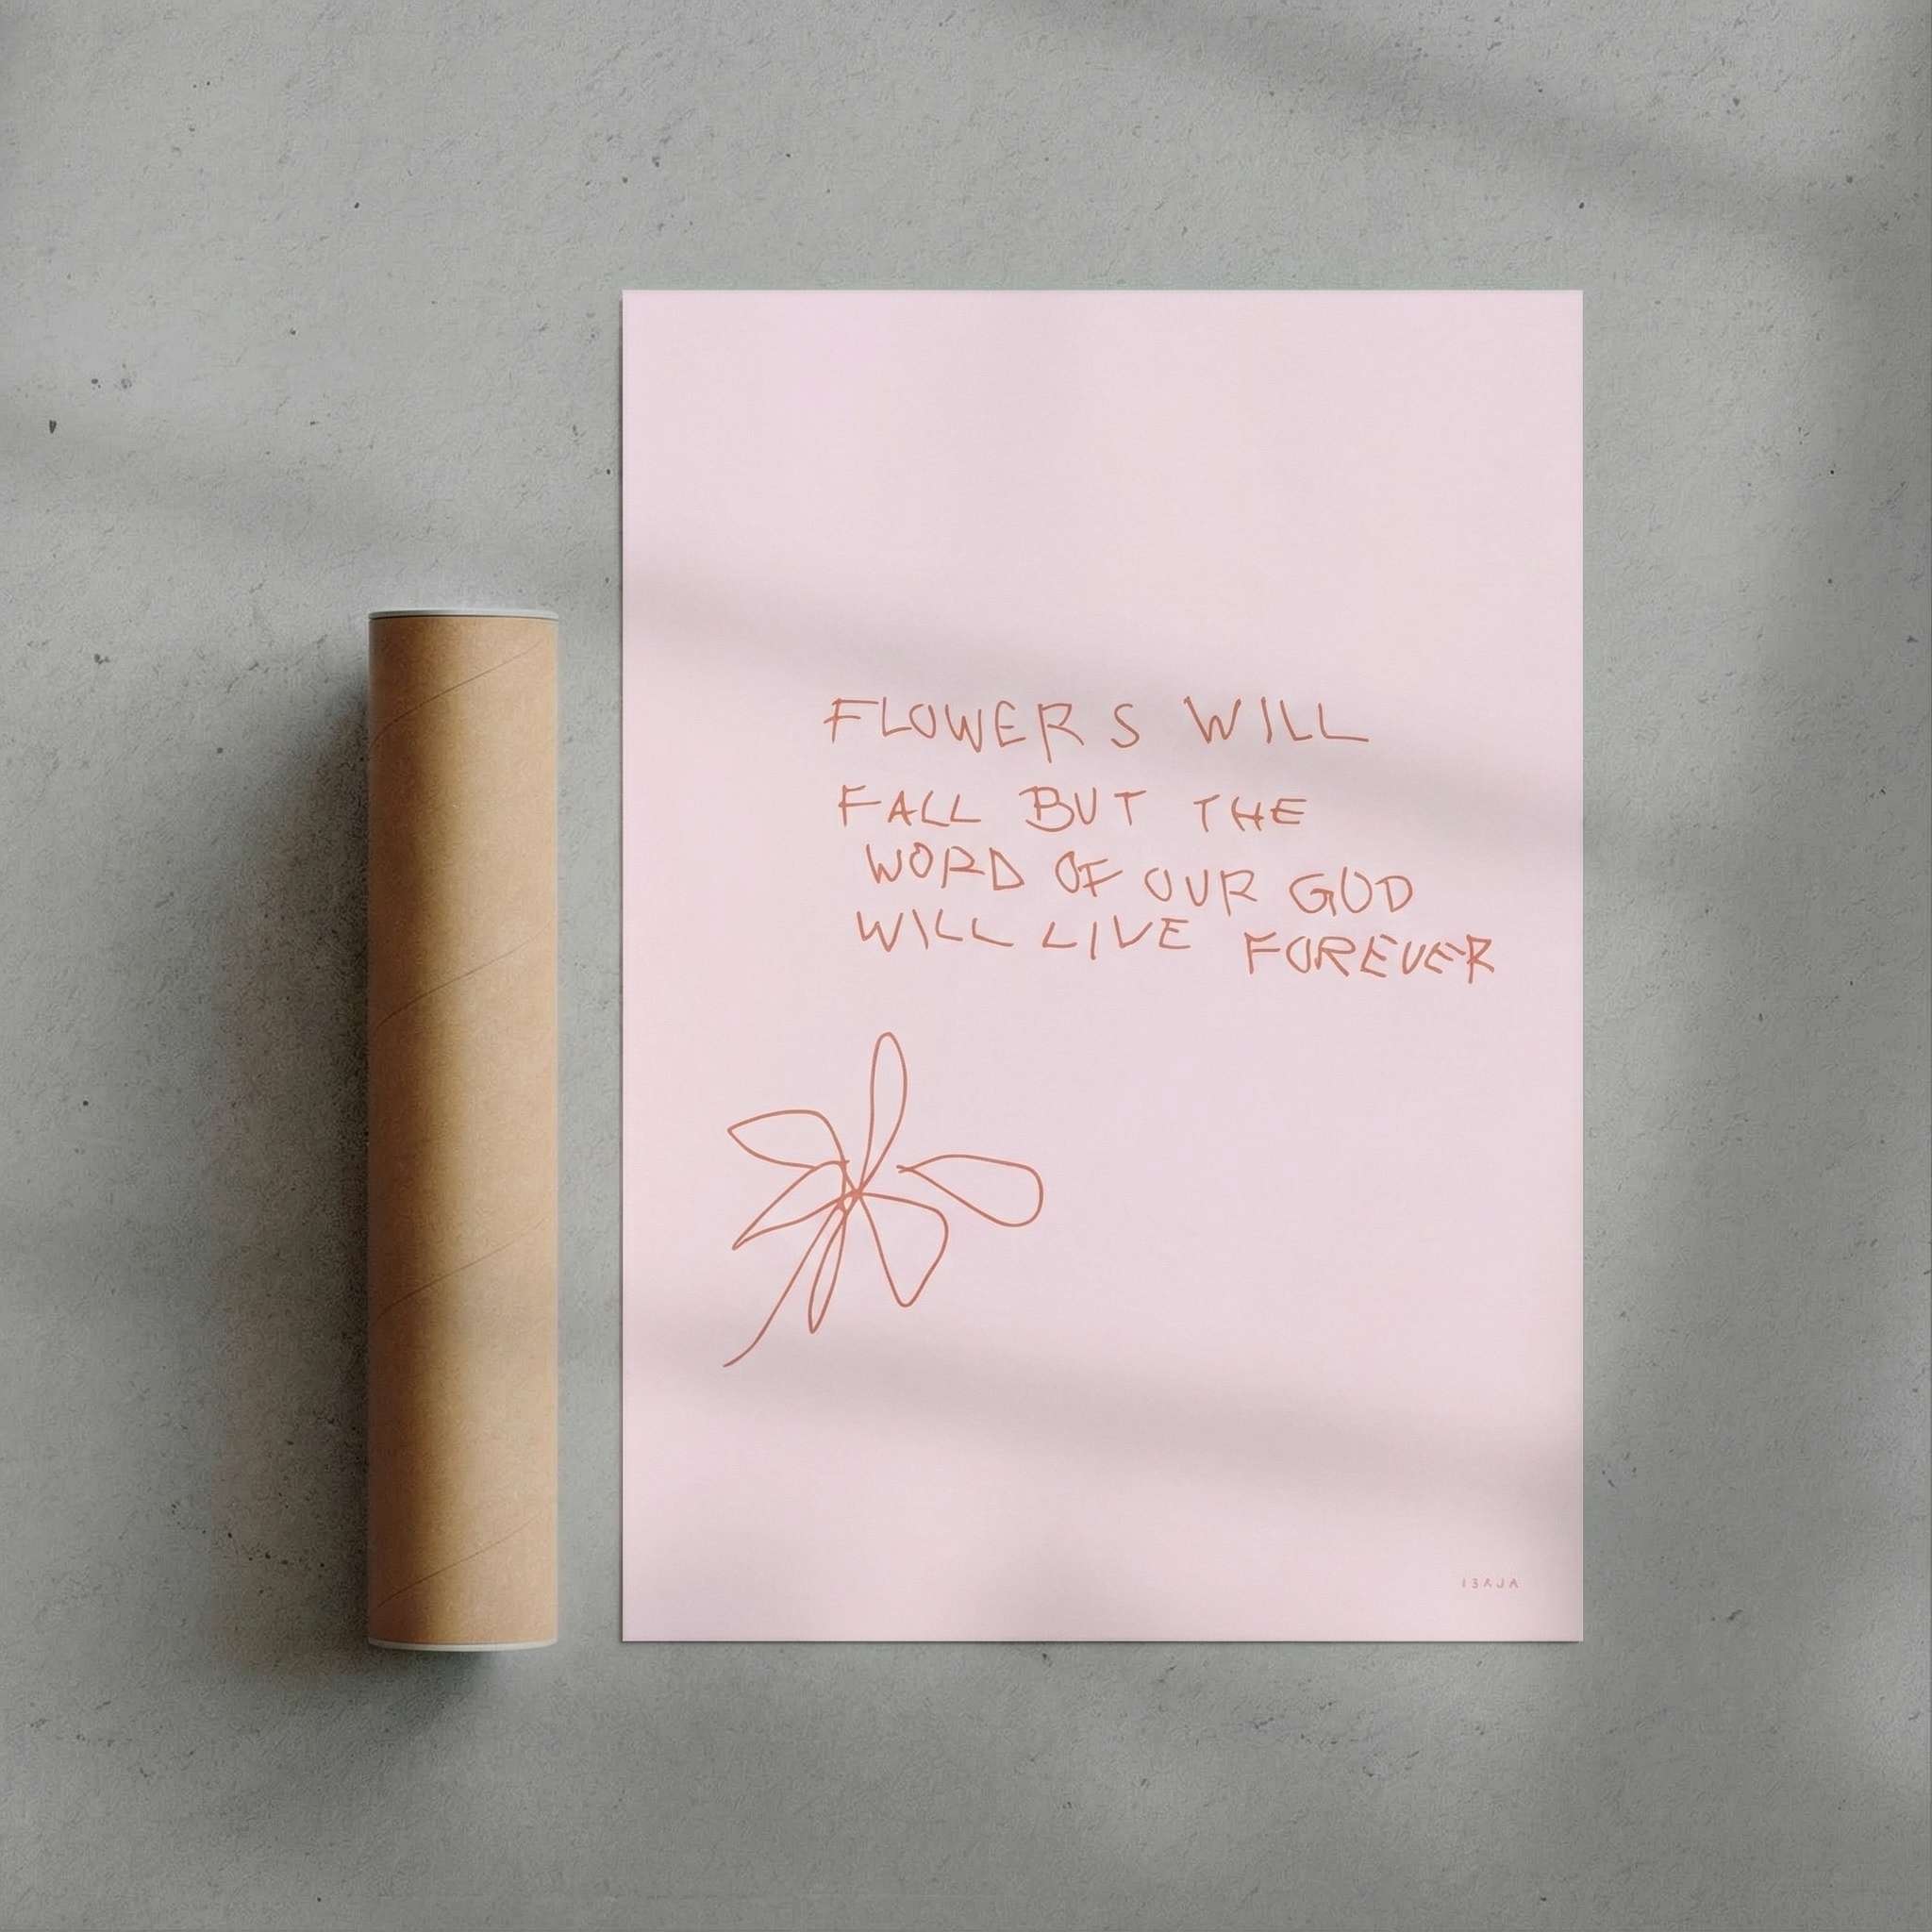 FLOWERS WILL
FALL BUT THE
WORD OF OUR GOD
WILL LIVE FOREVER